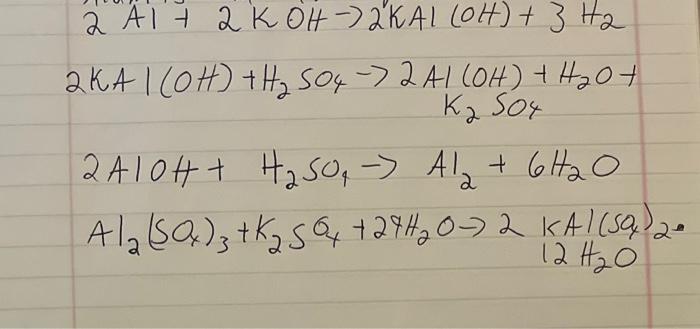 2 Al + 2 KOH → 2KAl (OH) + 3 H₂
2KAl(OH) + H₂SO₄ → 2Al(OH) + H₂O +
K₂SO₄
2AlOH + H₂SO₄ → Al₂ + 6H₂O
Al₂(SO₄)₃ + K₂SO₄ + 24H₂O → 2 KAl(SO₄)₂•
12 H₂O